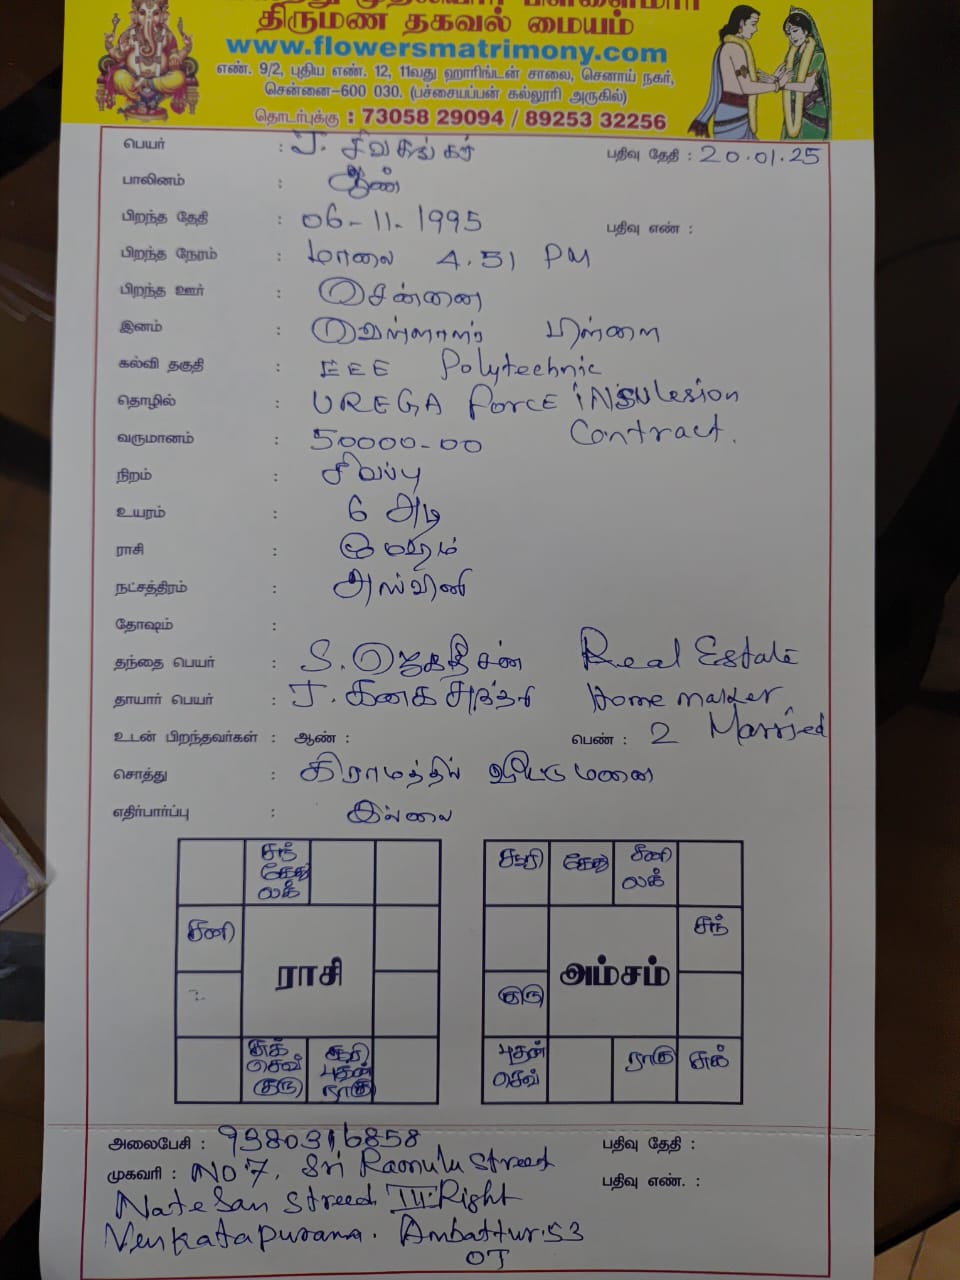 திருமண தகவல் மையம்
www.flowersmatrimony.com
எண். 9/2, புதிய எண். 12, 11வது ஹாரிங்டன் சாலை, செனாய் நகர்,
சென்னை-600 030. (பச்சையப்பன் கல்லூரி அருகில்)
தொடர்புக்கு : 73058 29094 / 89253 32256
பெயர் : J. சிவசங்கர் பதிவு தேதி : 20.01.25
பாலினம் : ஆண்
பிறந்த தேதி : 06-11-1995 பதிவு எண் :
பிறந்த நேரம் : மாலை 4.51 PM
பிறந்த ஊர் : சென்னை
இனம் : வெள்ளாளர் பிள்ளை
கல்வி தகுதி : EEE Polytechnic
தொழில் : UREGA Force iNSUlesion
Contract.
வருமானம் : 50000-00
நிறம் : சிவப்பு
உயரம் : 6 அடி
ராசி : மேஷம்
நட்சத்திரம் : அஸ்வினி
தோஷம் :
தந்தை பெயர் : S. ஜெகதீசன் Real Estate
தாயார் பெயர் : J. கனக சுந்தரி Home maker
உடன் பிறந்தவர்கள் : ஆண் : பெண் : 2 Married
சொத்து : கிராமத்தில் வீட்டு மனை
எதிர்பார்ப்பு : இல்லை
சந் கேது லக்
சனி
ராசி
சுக் செவ் குரு
சூரி புதன் ராகு
சூரி கேது சனி லக்
சந்
அம்சம்
குரு
புதன் செவ் ராகு சுக்
அலைபேசி : 9380316858 பதிவு தேதி :
முகவரி : NO 7, Sri Ramulu Street பதிவு எண். :
Natesan Streed III Right
Venkatapurama. Ambattur.53
OT